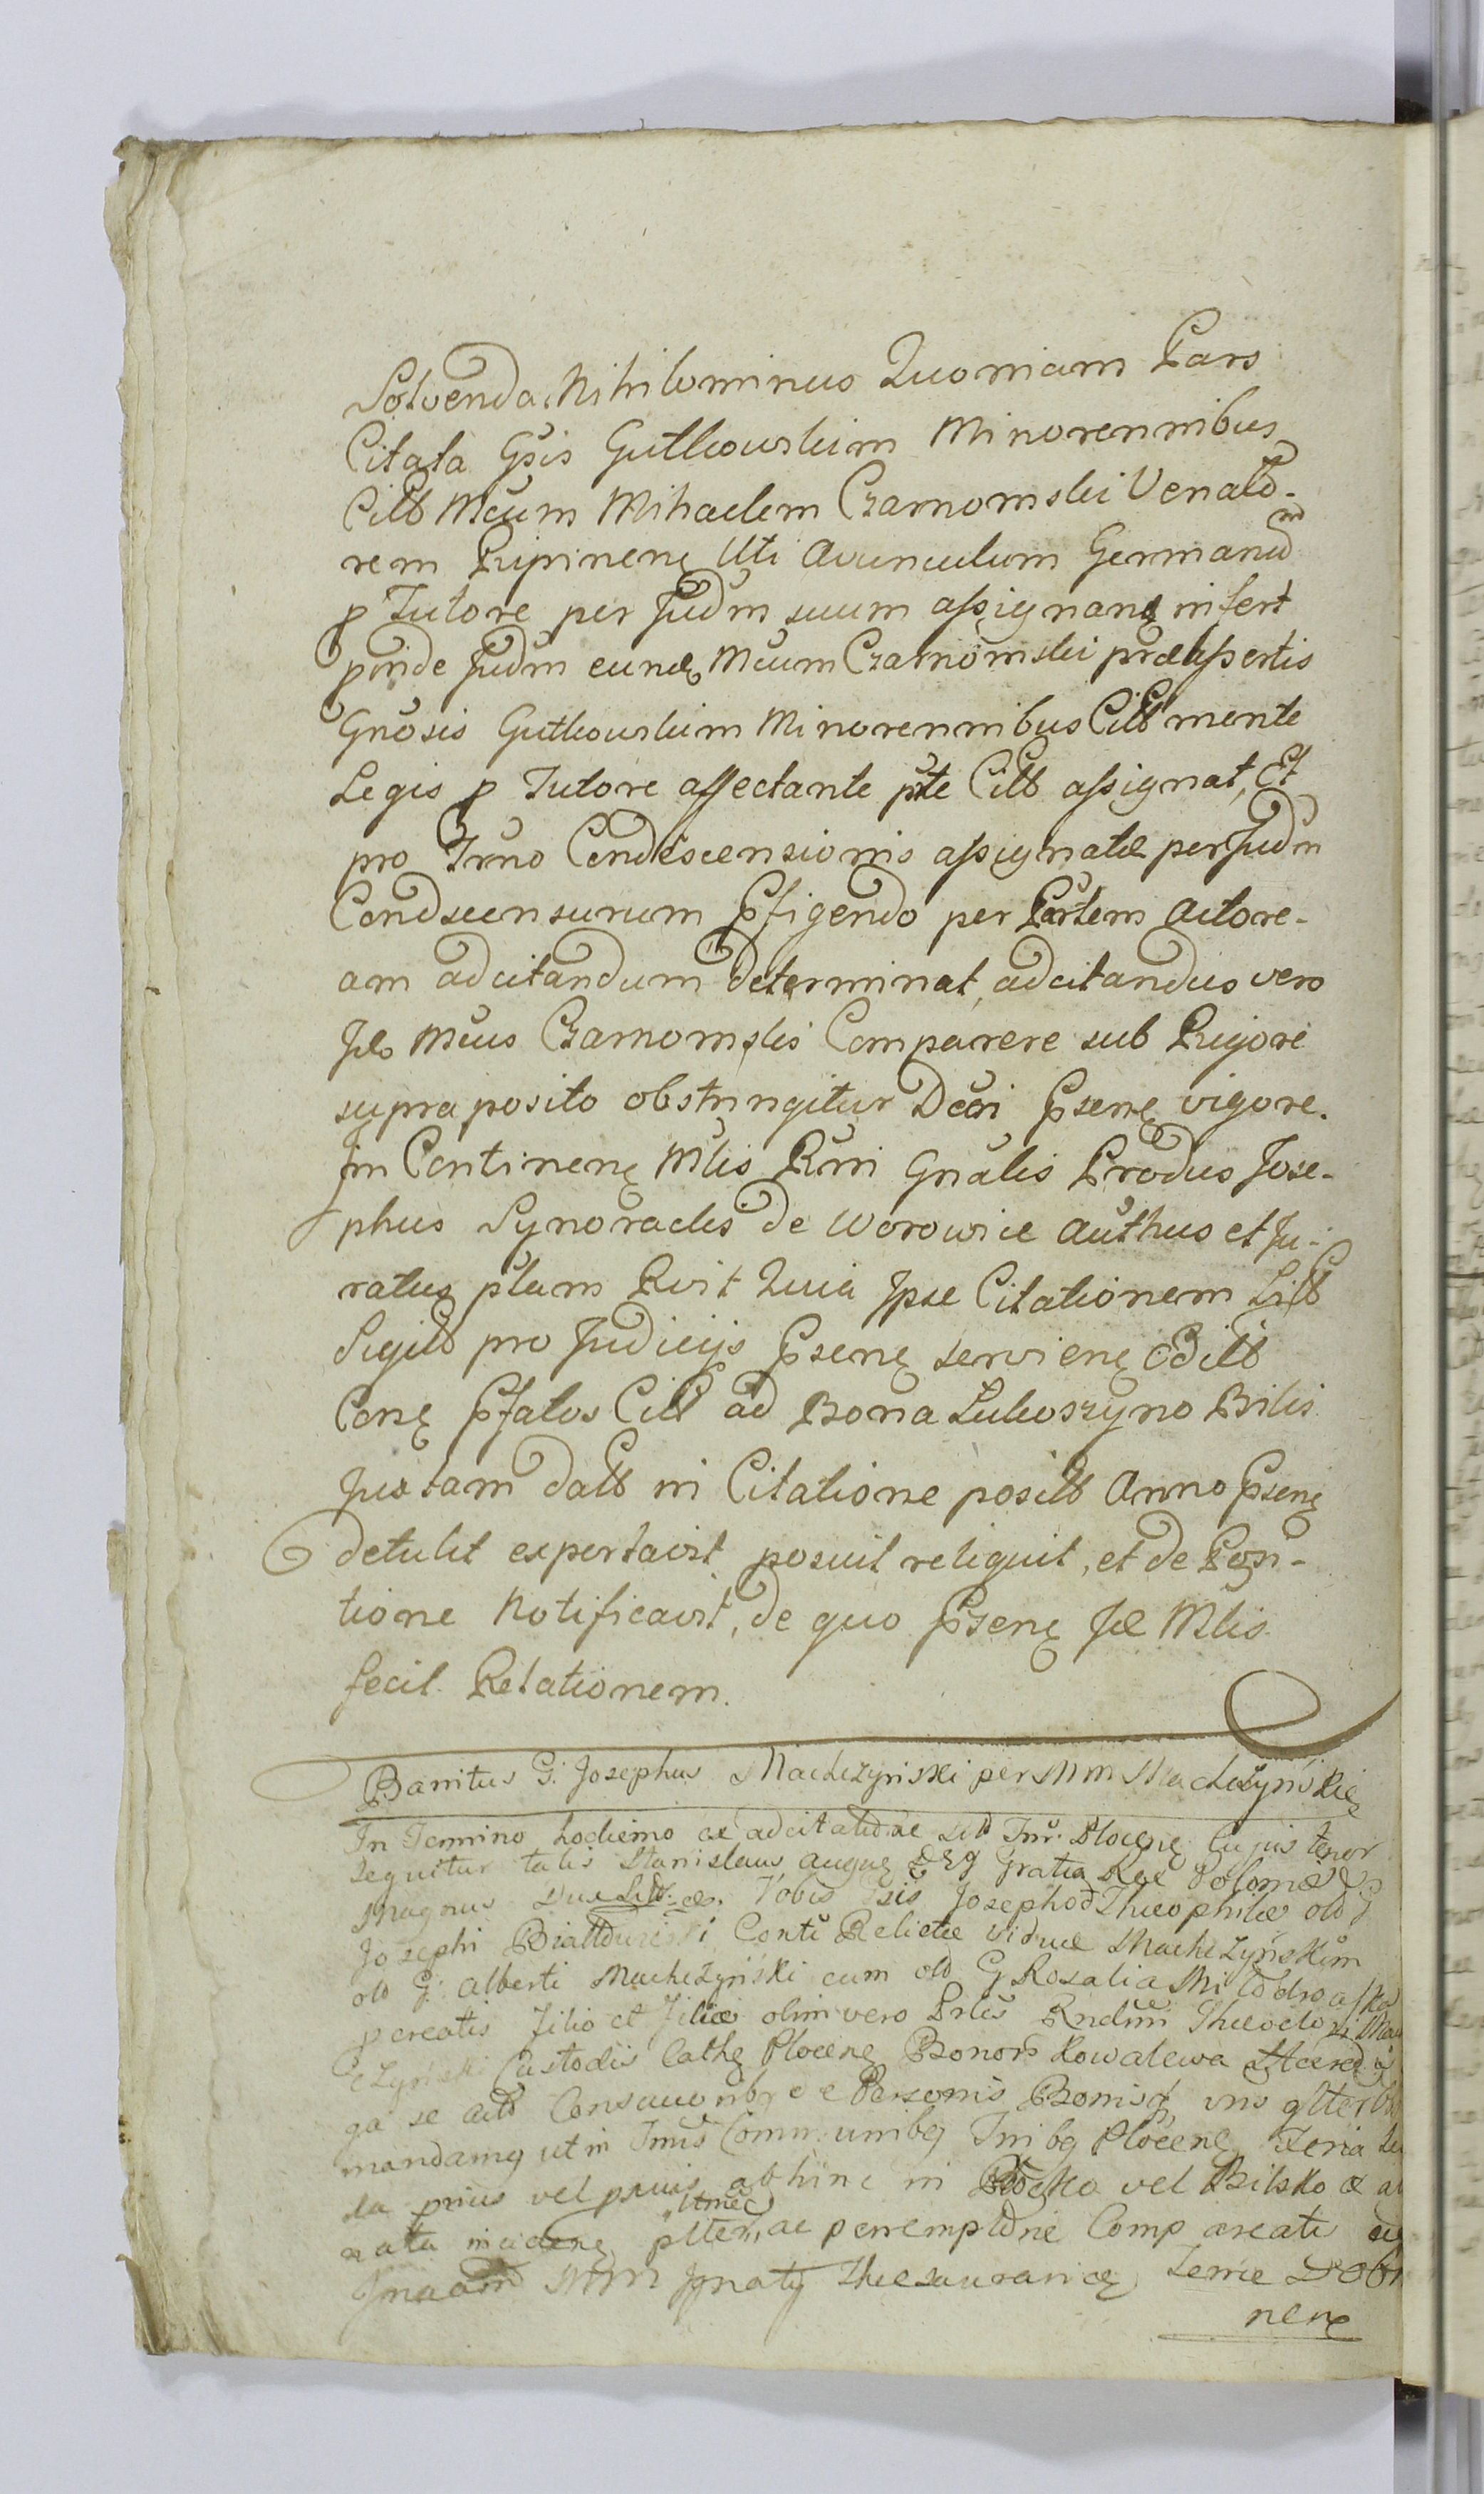 Solvenda, Nihilominus Quoniam Pars
Citata Gsis Gutkowskim Minorennibus
Citt Mcum Mihaelem Czarnomski Venato-
rem Ripinenę Uti Avunculum Germanum
p Tutore per Judm suum assignanę infert
pinde Judm eundę Mcum Czarnomski præassertis
Gnosis Gutkowskim Minorennibus Citt mente
Legis p Tutore affectante pte Citt assignat, Et
pro Trno Condescensionis assignatæ per Judm
Condscensurum Pfigendo per Partem Actore-
am adcitandum determinat, adcitandus vero
Jdo Mcus Czarnomski Comparere sub Rigore
supraposito obstringitur Dcri Psenę vigore.
In Continenę Mlis Rni Gnalis Produs Jose-
phus Synoradzki de Worowice Authus et Ju-
ratus plam Rvit Quia Ipse Citationem Litt
Sigitt pro Judicijs Psenę servienę Editt
Conę Pfatos Citt ad Bona Lukoszyno Bilis
Juxtam datt in Citatione positt Anno Psenę
detulit exportavit posuit reliquit, et de Posi-
tione Notificavit, de quo Psenę Jd Mlis
fecit Relationem.
Banitus G. Josephus Machczyński per MM Machczyńskie
In Termino hodierno ex adcitatione Litt Tnr. Plocenę Cujus tenor
sequitur talis Stanislaus Augus Dei Gratia Rex Poloniæ
Magnus Dux Litt. Vobis Gsis Josepho Theophilæ old G
Josephi Contu Relictæ Viduæ Machczyńskim
old G. Alberti Machczyński cum old G Rosalia
pcreatis Filio et Filiæ olim vero Prlis Rndmi Theodori Mach
czyński Custodis Cathę Plocenę Bonorm Kowalewa Hæred
ga se actt Consuconbg e Personis Bonisq vris gtter
mandamg ut in Tnis Communibg Tnibg Plocenę Feria
da prius vel pxuis abhinc in Płocko vel Bilsko
cata incidenę pltter, ac peremptorie Compareatis
Jnaam MM Jgnatij Thesaurarioę Terræ Dobri
nenę